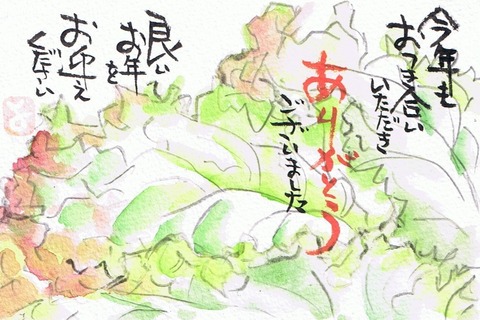 今年も
おつき合い
いただき
ありがとう
ございました
良い
お年を
お迎え
ください